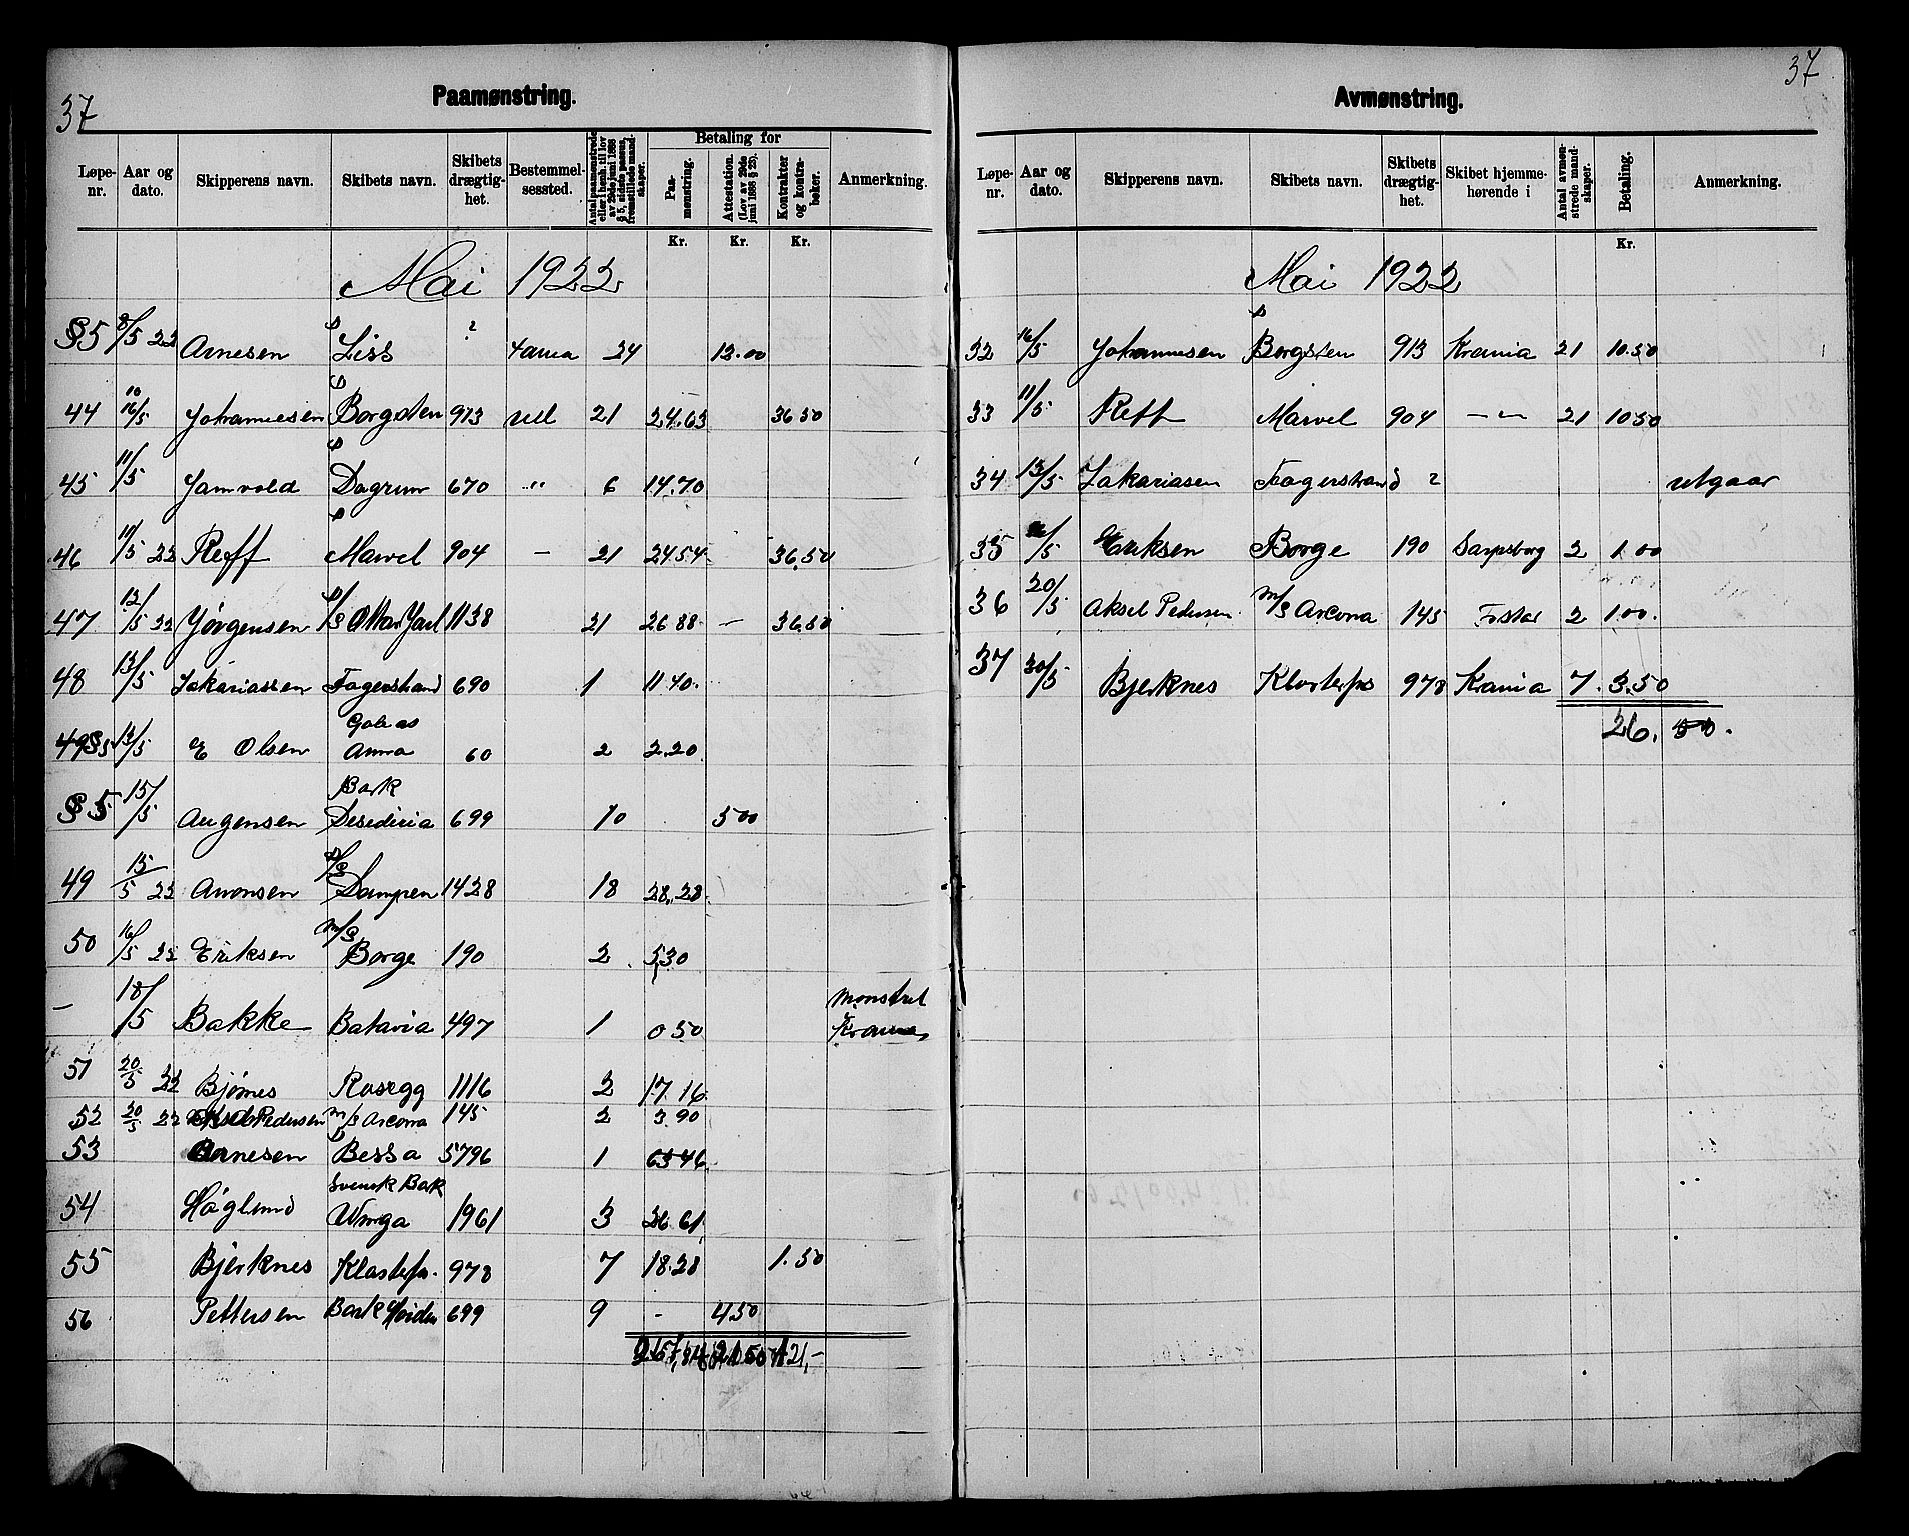 37
Paamønstring.
Løpe-nr. Aar og dato. Skipperens navn. Skibets navn. Skibets drægtig-het. Bestemmel-sessted. Antal paamønstrede eller i henh. til lov av 29de juni 1888 § 5, sidste passus, fremstillede mand-skaper. Betaling for Paa-mønstring. Attestation. (Lov av 29de juni 1888 § 25). Kontrakter og kontra-bøker. Anmerkning.
Kr. Kr. Kr.
Mai 1922
§5 8/5 22 Arnesen S Liss ? 24 12.00
44 10 16/5 Johannesen S Borgsten 913 ud 21 24.63 36 50
45 11/5 Jamvold S Dagrun 670 " 6 14.70
46 11/5 22 Reff S Marvel 904 - 21 24 54 36.50
47 12/5 22 Jørgensen S/S Ottar Jarl 1138 21 26 88 - 36.50
48 13/5 Zakariassen Fagerstrand 690 1 11 40.
49 §5 13/5 E Olsen Galeas Anna 60 2 2.20
§5 15/5 Augensen Bark Desediria 699 10 5 00
49 15/5 22 Aronsen S/S Dampen 1428 18 28.28
50 16/5 22 Eriksen m/S Borge 190 2 5.30
- 18/5 Bakke Batavia 497 1 0 50 Mønstret Krania
51 20/5 22 Bjørnes Rosegg 1116 2 17 16
52 20/5 22 Aksel Pedersen m/S Arcona 145 2 3.90
53 Arnesen S Bessa 5796 1 63 46
54 Høglund Svensk Bark Winga 1961 3 26 61
55 Bjerknes Klosterfos. 978 7 18.28 1.50
56 Pettersen Bark 699 9 - 4 50
267,84 21 50 121,-
37
Avmønstring.
Løpe-nr. Aar og dato. Skipperens navn. Skibets navn. Skibets drægtig-het. Skibet hjemme-hørende i Antal avmøn-strede mand-skaper. Betaling. Anmerkning.
Kr.
Mai 1922
32 16/5 Johannesen S Borgsten 913 Krania 21 10.50
33 11/5 Reff Marvel 904 - " - 21 10 50
34 13/5 Zakariasen Fagerstrand ? utgaar
35 16/5 Eriksen Borge 190 Sarpsborg 2 1.00
36 20/5 Aksel Pedersen m/S Arcona 145 F.stad 2 1.00.
37 30/5 Bjerknes Klosterfos 978 Krania 7. 3.50
26. 50.